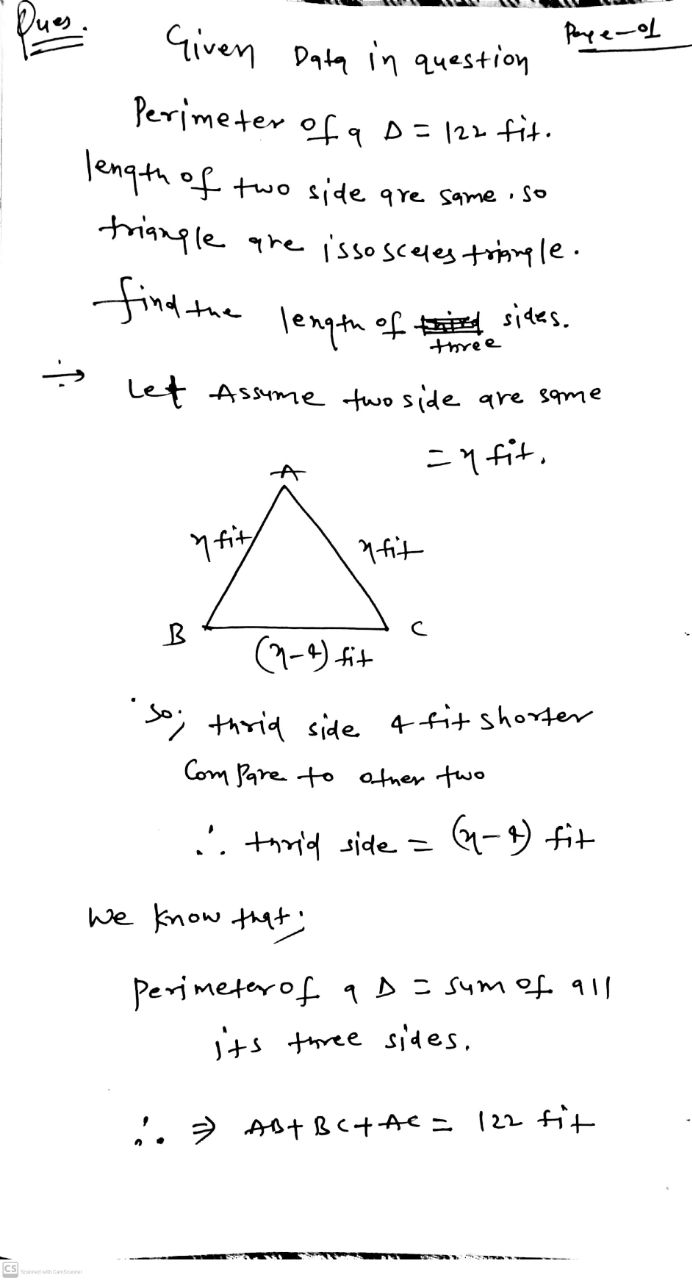 Ques.
Page-01
Given Data in question
Perimeter of a Δ = 122 fit.
length of two side are same. so
triangle are issosceles triangle.
find the length of three sides.
Let Assume two side are same
= x fit.
A
x fit
x fit
B
C
(x-4) fit
so; thrid side 4 fit shorter
Compare to other two
∴ thrid side = (x-4) fit
We know that;
Perimeter of a Δ = sum of all
its three sides.
∴ ⇒ AB+BC+AC = 122 fit
CS Scanned with CamScanner